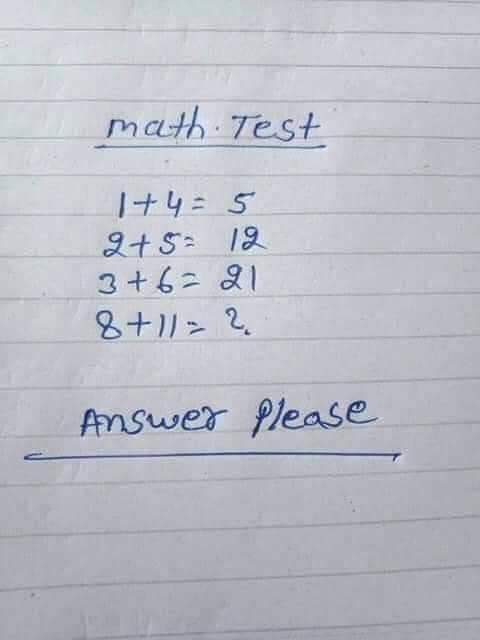 math. Test
1+4= 5
2+5= 12
3+6= 21
8+11= ?
Answer Please